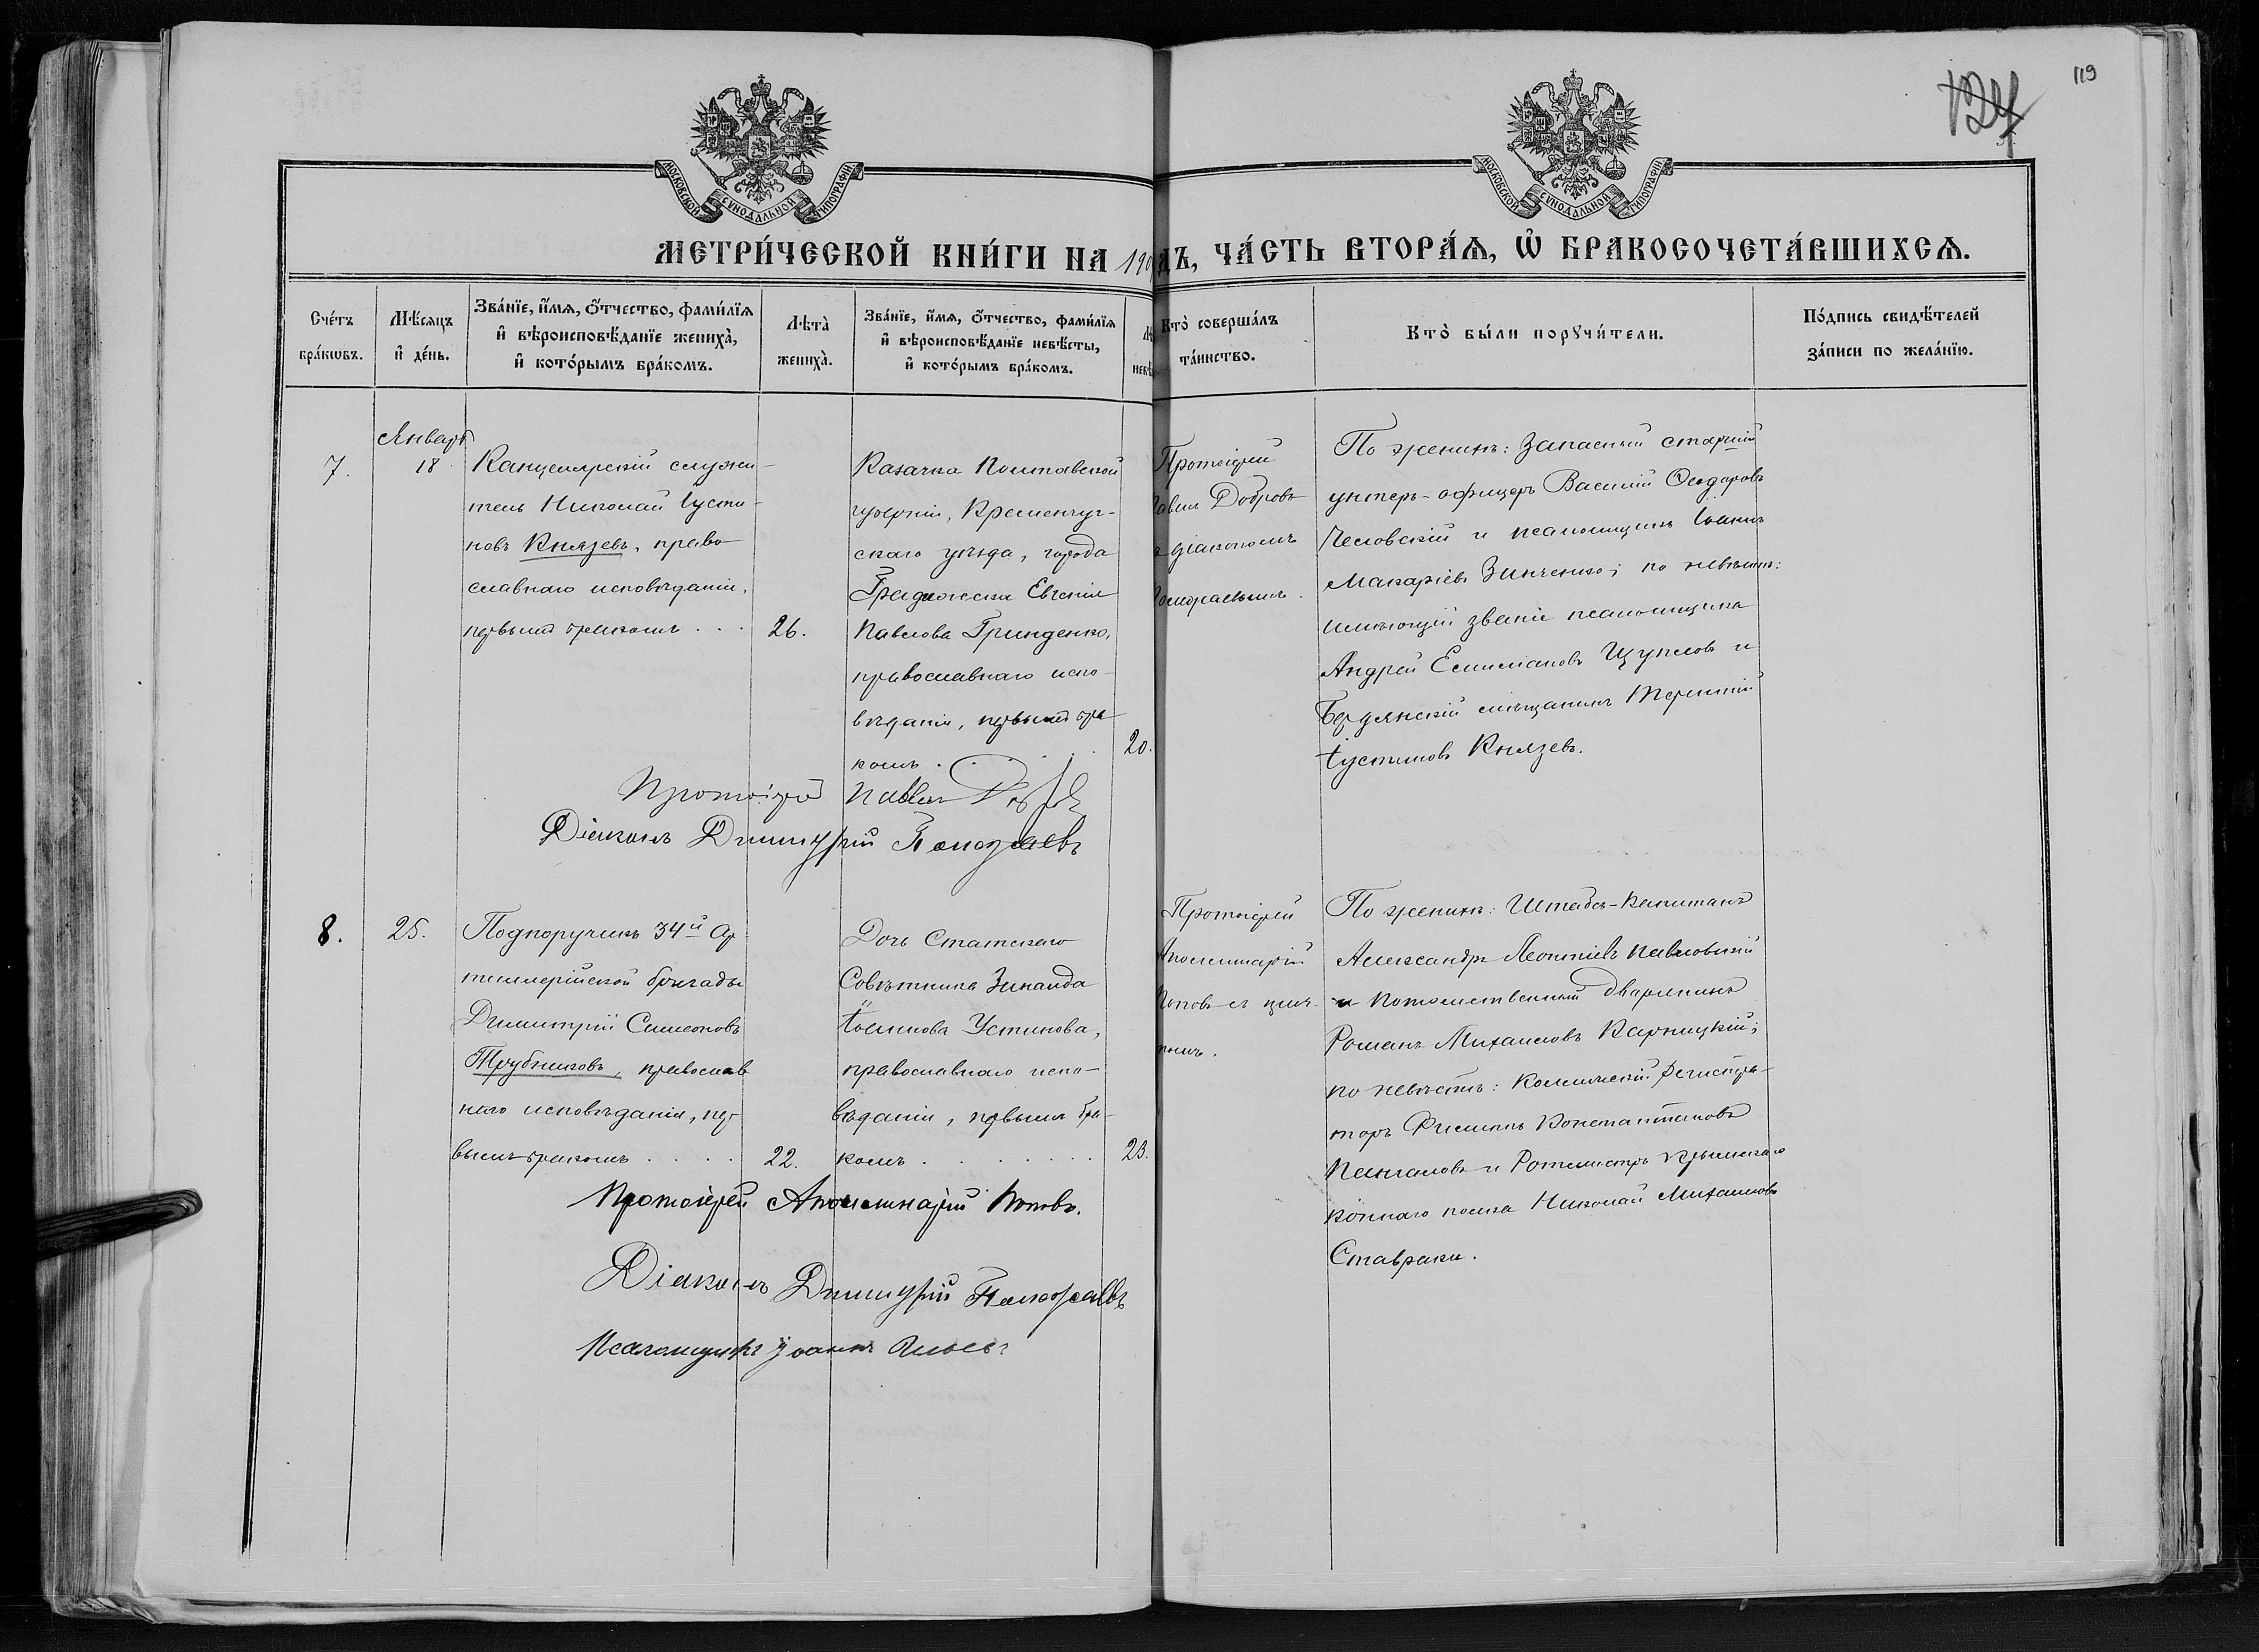 119
124
МОСКОВСКОЙ СУНОДАЛЬНОЙ ТИПОГРАФІИ
МОСКОВСКОЙ СУНОДАЛЬНОЙ ТИПОГРАФІИ
МЕТРИ́ЧЕСКОЙ КНИ́ГИ НА 190
ДЪ, ЧА́СТЬ ВТОРА́Ѧ, Ѡ БРАКОСОЧЕТА́ВШИХСѦ.
Сче́тъ бра́кѡвъ.
Мѣ́сяцъ и҆ де́нь.
Зва́нїе, и҆́мѧ, ѻ҆́тчество, фами́лїѧ и҆ вѣроисповѣ́данїе женихà, и҆ кото́рымъ бра́комъ.
Лѣтà женихà.
Зва́нїе, и҆́мѧ, ѻ҆́тчество, фами́лїѧ и҆ вѣроисповѣ́данїе невѣ́сты, и҆ кото́рымъ бра́комъ.
Кто̀ соверша́лъ та́инство.
Кто̀ бы́ли порꙋчи́тели.
По́дпись свидѣ́телей за́писи по жела́нїю.
7.
Январь
18
Канцелярскій служи-
тель Николай Іусти-
новъ Князевъ, право
славнаго исповѣданія,
первымъ бракомъ . . .
26.
Казачка Полтавской
губерніи, Кременчуг-
скаго уѣзда, города
Градижска Евгенія
Павлова Гринденко,
православнаго испо-
вѣданія, первымъ бра
комъ . . .
20.
Протоіерей
Павелъ Добровъ
съ діакономъ
Понураевымъ.
По женихѣ: Запасный старшій
унтеръ-офицеръ Василій Ѳеодоровъ
Чесловскій и псаломщикъ Іоаннъ
Макаріевъ Зинченко; по невѣстѣ:
имѣющій званіе псаломщика
Андрей Емиліановъ Щукловъ и
Бердянскій мѣщанинъ Терентій
Іустиновъ Князевъ.
Протоіерей Павелъ Добровъ
Діаконъ Димитрій
8.
25.
Подпоручикъ 34й Ар
тиллерійской бригады
Димитрій Симеоновъ
Трубниковъ, православ
наго исповѣданія, пер
вымъ бракомъ . . . .
22.
Дочь Статскаго
Совѣтника Зинаида
Іоаннова Устинова,
православнаго испо-
вѣданія, первымъ бра-
комъ . . . . . . .
23.
Протоіерей
Аполлинарій
Поповъ съ прич-
томъ.
По женихѣ: Штабсъ-Капитанъ
Александръ Леонтіевъ Павловскій
и потомственный дворянинъ
Романъ Михаиловъ Карницкій;
по невѣстѣ: Коллежскій Регистра-
торъ Филиппъ Константиновъ
Пангаловъ и Ротмистръ Крымскаго
коннаго полка Николай Михаиловъ
Ставраки.
Протоіерей Аполлинарій Поповъ.
Діаконъ Димитрій
Псаломщикъ Іоаннъ